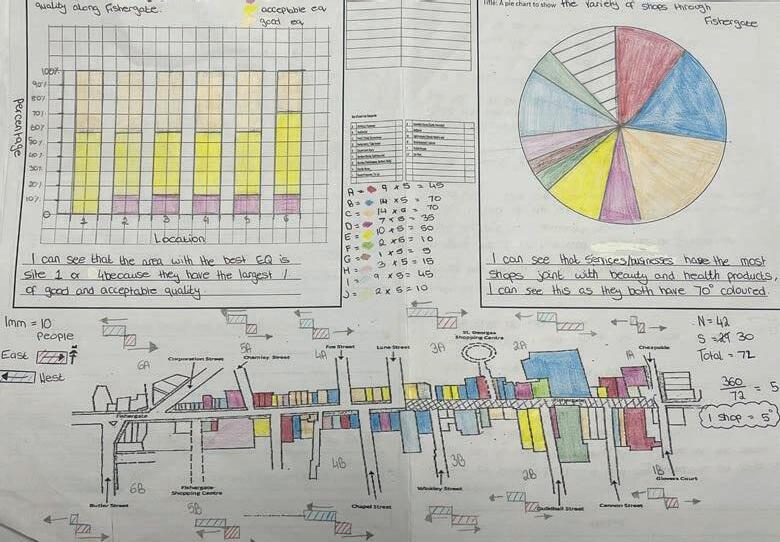 quality along Fishergate.
acceptable eq
good eq
100%
90%
80%
70%
60%
50%
40%
30%
20%
10%
0
Percentage
1 2 3 4 5 6
Location
I can see that the area with the best EQ is
site 1 or 4 because they have the largest %
of good and acceptable quality.
A = 9 x 5 = 45
B = 14 x 5 = 70
C = 14 x 5 = 70
D = 7 x 5 = 35
E = 10 x 5 = 50
F = 2 x 5 = 10
G = 1 x 5 = 5
H = 3 x 5 = 15
I = 9 x 5 = 45
J = 2 x 5 = 10
Title: A pie chart to show the variety of shops through
Fishergate
I can see that services/businesses have the most
shops joint with beauty and health products,
I can see this as they both have 70° coloured.
1mm = 10
People
East
West
N = 42
S = 30
Total = 72
360
72
= 5
1 shop = 5°
6A
5A
4A
3A
2A
1A
Corporation Street
Charnley Street
Fox Street
Lune Street
St. Georges
Shopping Centre
Cheapside
Fishergate
6B
5B
4B
3B
2B
1B
Butler Street
Fishergate
Shopping Centre
Chapel Street
Winkley Street
Guildhall Street
Cannon Street
Glovers Court